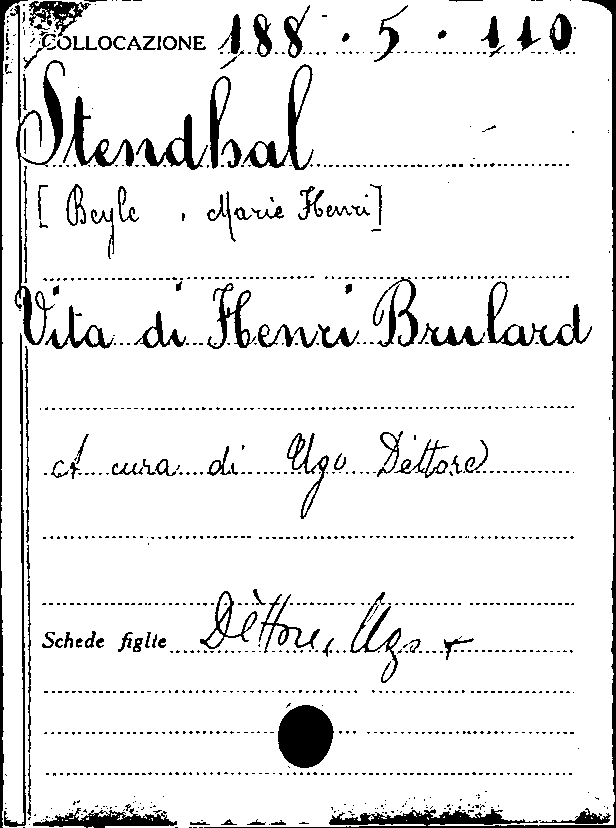 COLLOCAZIONE 188 . 5 . 110
Stendhal
[Beyle , Marie Henri]
Vita di Henri Brulard
A cura di Ugo Dèttore
Schede figlie Dèttore, Ugo +